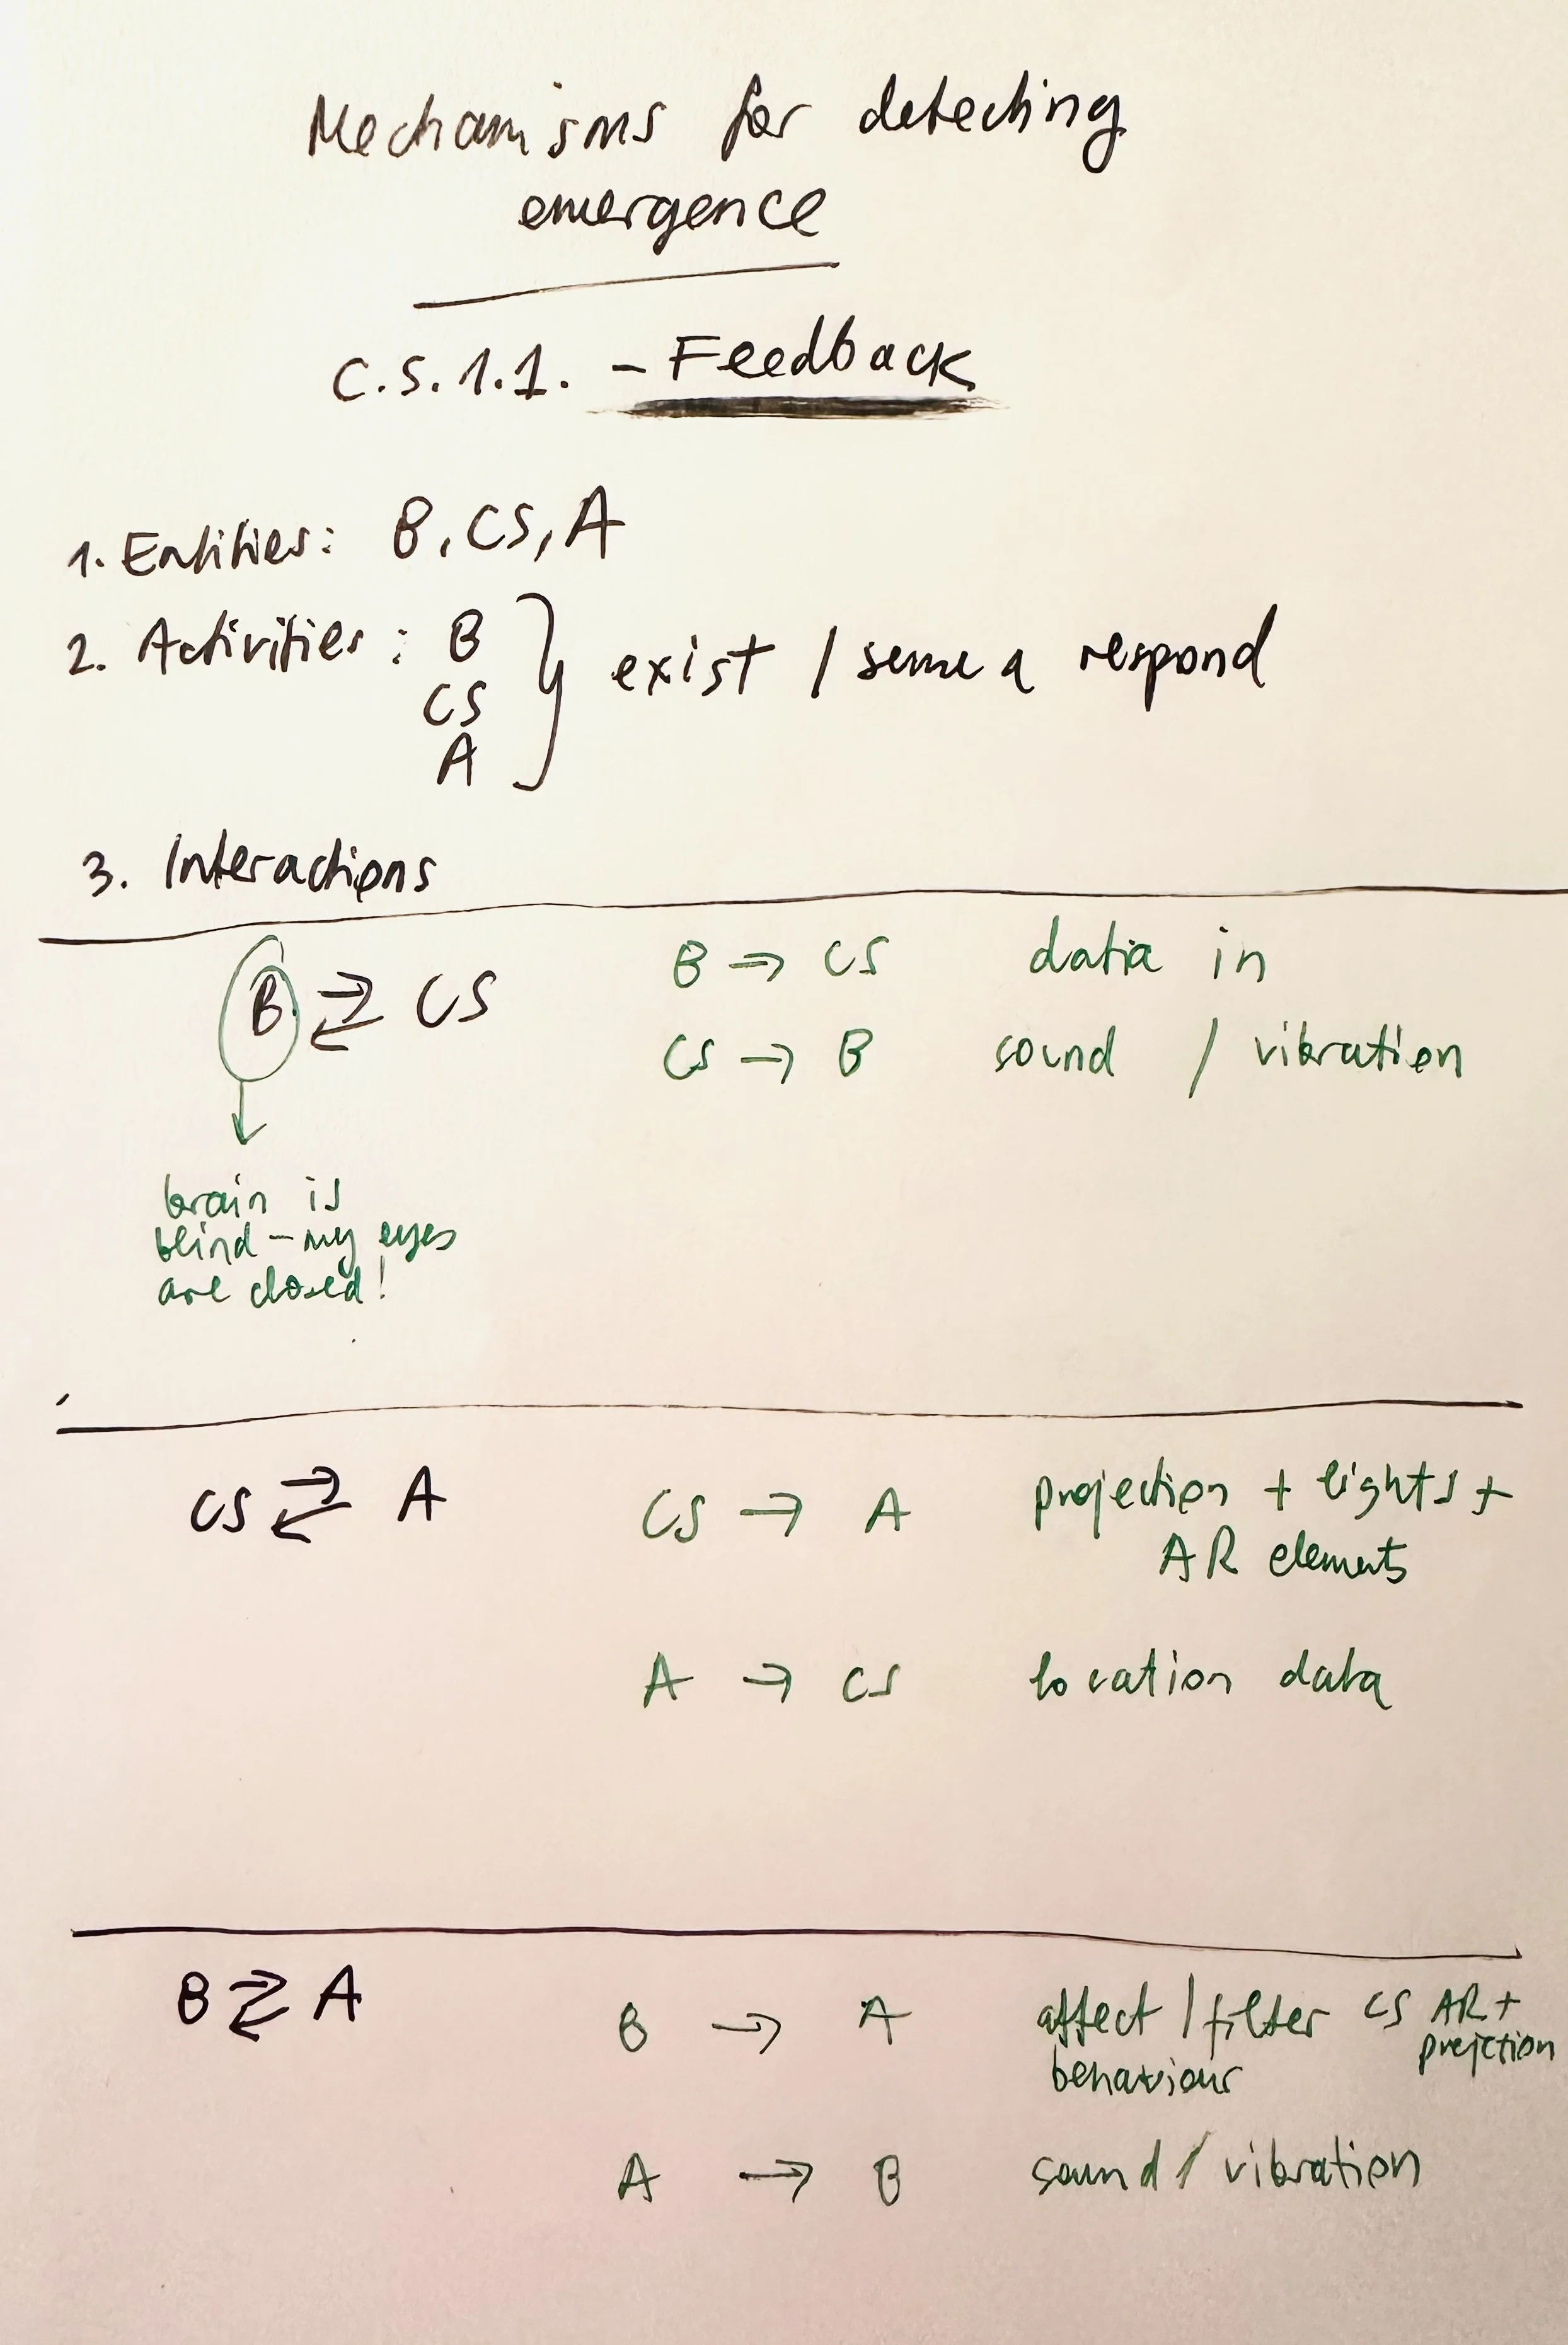 Mechanisms for detecting
emergence
C.S.1.1. - Feedback
1. Entities: B, CS, A
2. Activities: B
CS
A
exist / sense a respond
3. Interactions
B ⇄ CS
B → CS data in
CS → B sound / vibration
brain is
blind - my eyes
are closed!
CS ⇄ A
CS → A projection + lights +
AR elements
A → CS location data
B ⇄ A
B → A affect / filter CS AR +
projection
behaviour
A → B sound / vibration